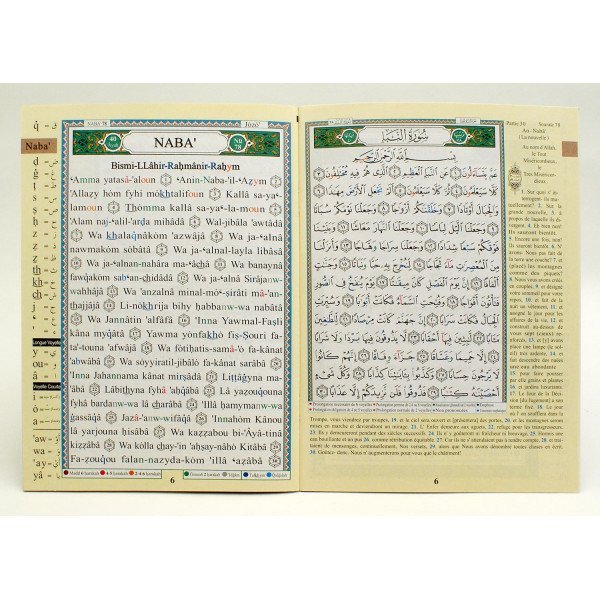 NABA' 78
Jozo'
NABA'
Bismi-LLâhir-Raḥmânir-Raḥym
‘Amma yatasâ'aloun ‘Anin-Naba-'il-‘Aẓym
'Allazy hom fyhi mokhtalifoun Kallâ sa-ya‘-
lamoun Thomma kallâ sa-ya‘-la-moun
'Alam naj-‘alil-'arḍa mihâdâ Wal-jibâla 'awtâdâ
Wa khalaqnâkom 'azwâjâ Wa ja-‘alnâ
nawmakom sobâtâ Wa ja-‘alnal-layla libâsâ
Wa ja-‘alnan-nahâra ma-‘âchâ Wa banaynâ
fawqakom sab‘an-chidâdâ Wa ja-‘alnâ Sirâjanw-
wahhâjâ Wa 'anzalnâ minal-mo‘-ṣirâti mâ-'an-
thajjâjâ Li-nokhrija bihy ḥabbanw-wa nabâtâ
Wa Jannâtin 'alfâfâ 'Inna Yawmal-Faṣli
kâna myqâtâ Yawma yonfakho fiṣ-Ṣouri fa-
ta'touna 'afwâjâ Wa fotiḥatis-samâ-'o fa-kânat
'abwâbâ Wa soyyiratil-jibâlo fa-kânat sarâbâ
'Inna Jahannama kânat mirṣâdâ Liṭṭâghyna ma-
'âbâ Lâbithyna fyhâ 'aḥqâbâ Lâ yazouqouna
fyhâ bardanw-wa lâ charâbâ 'Illâ ḥamymanw-wa
ghassâqâ Jazâ-'anw-wifâqâ 'Innahom Kânou
lâ yarjouna ḥisâbâ Wa kazzabou bi-'Âyâ-tinâ
kizzâbâ Wa kolla chay-'in 'aḥṣay-nâho Kitâbâ
Fa-zouqou falan-nazyda-kom 'illâ ‘azâbâ
6
سُورَةُ النَّبَإِ
بِسْمِ اللَّهِ الرَّحْمَٰنِ الرَّحِيمِ
عَمَّ يَتَسَاءَلُونَ ١ عَنِ النَّبَإِ الْعَظِيمِ ٢ الَّذِي هُمْ فِيهِ مُخْتَلِفُونَ ٣
كَلَّا سَيَعْلَمُونَ ٤ ثُمَّ كَلَّا سَيَعْلَمُونَ ٥ أَلَمْ نَجْعَلِ الْأَرْضَ مِهَادًا ٦
وَالْجِبَالَ أَوْتَادًا ٧ وَخَلَقْنَاكُمْ أَزْوَاجًا ٨ وَجَعَلْنَا نَوْمَكُمْ سُبَاتًا ٩
وَجَعَلْنَا اللَّيْلَ لِبَاسًا ١٠ وَجَعَلْنَا النَّهَارَ مَعَاشًا ١١ وَبَنَيْنَا
فَوْقَكُمْ سَبْعًا شِدَادًا ١٢ وَجَعَلْنَا سِرَاجًا وَهَّاجًا ١٣ وَأَنْزَلْنَا
مِنَ الْمُعْصِرَاتِ مَاءً ثَجَّاجًا ١٤ لِنُخْرِجَ بِهِ حَبًّا وَنَبَاتًا ١٥ وَجَنَّاتٍ
أَلْفَافًا ١٦ إِنَّ يَوْمَ الْفَصْلِ كَانَ مِيقَاتًا ١٧ يَوْمَ يُنْفَخُ فِي الصُّورِ
فَتَأْتُونَ أَفْوَاجًا ١٨ وَفُتِحَتِ السَّمَاءُ فَكَانَتْ أَبْوَابًا ١٩ وَسُيِّرَتِ
الْجِبَالُ فَكَانَتْ سَرَابًا ٢٠ إِنَّ جَهَنَّمَ كَانَتْ مِرْصَادًا ٢١ لِلطَّاغِينَ
مَآبًا ٢٢ لَابِثِينَ فِيهَا أَحْقَابًا ٢٣ لَا يَذُوقُونَ فِيهَا بَرْدًا وَلَا شَرَابًا
٢٤ إِلَّا حَمِيمًا وَغَسَّاقًا ٢٥ جَزَاءً وِفَاقًا ٢٦ إِنَّهُمْ كَانُوا
لَا يَرْجُونَ حِسَابًا ٢٧ وَكَذَّبُوا بِآيَاتِنَا كِذَّابًا ٢٨ وَكُلَّ شَيْءٍ
أَحْصَيْنَاهُ كِتَابًا ٢٩ فَذُوقُوا فَلَنْ نَزِيدَكُمْ إِلَّا عَذَابًا ٣٠
Partie 30 Sourate 78
An - Nabâ'
(La nouvelle)
Au nom d'Allah,
le Tout
Miséricordieux,
le
Très Miséricor-
dieux.
1. Sur quoi s'in-
terrogent- ils mu-
tuellement? 2. Sur la
grande nouvelle, 3. à
propos de laquelle ils di-
vergent. 4. Eh bien non!
Ils sauront bientôt.
5. Encore une fois, non!
Ils sauront bientôt. 6. N'
avons- Nous pas fait de
la terre une couche? 7. et
(placé) les montagnes
comme des piquets?
8. Nous vous avons créés
en couples, 9. et désigné
votre sommeil pour votre
repos, 10. et fait de la
nuit un vêtement, 11. et
assigné le jour pour les
affaires de la vie, 12. et
construit au-dessus de
vous sept (cieux) ren-
forcés, 13. et [y] avons
placé une lampe (le so-
leil) très ardente, 14. et
fait descendre des nuées
une eau abondante
15. pour faire pousser
par elle grains et plantes
16. et jardins luxuriants.
17. Le Jour de la Déci-
sion [du Jugement] a son
terme fixé. 18. Le jour
où l'on soufflera dans la
Trompe, vous viendrez par troupes, 19. et le ciel sera ouvert et [présentera] des portes, 20. et les montagnes seront
mises en marche et deviendront un mirage. 21. L'Enfer demeure aux aguets, 22. refuge pour les transgresseurs.
23. Ils y demeureront pendant des siècles successifs. 24. Ils n'y goûteront ni fraîcheur ni breuvage, 25. Hormis une
eau bouillante et un pus 26. comme rétribution équitable. 27. Car ils ne s'attendaient pas à rendre compte, 28. et trai-
taient de mensonges, continuellement, Nos versets, 29. alors que Nous avons dénombré toutes choses en écrit.
30. Goûtez- donc. Nous n'augmenterons pour vous que le châtiment!
6